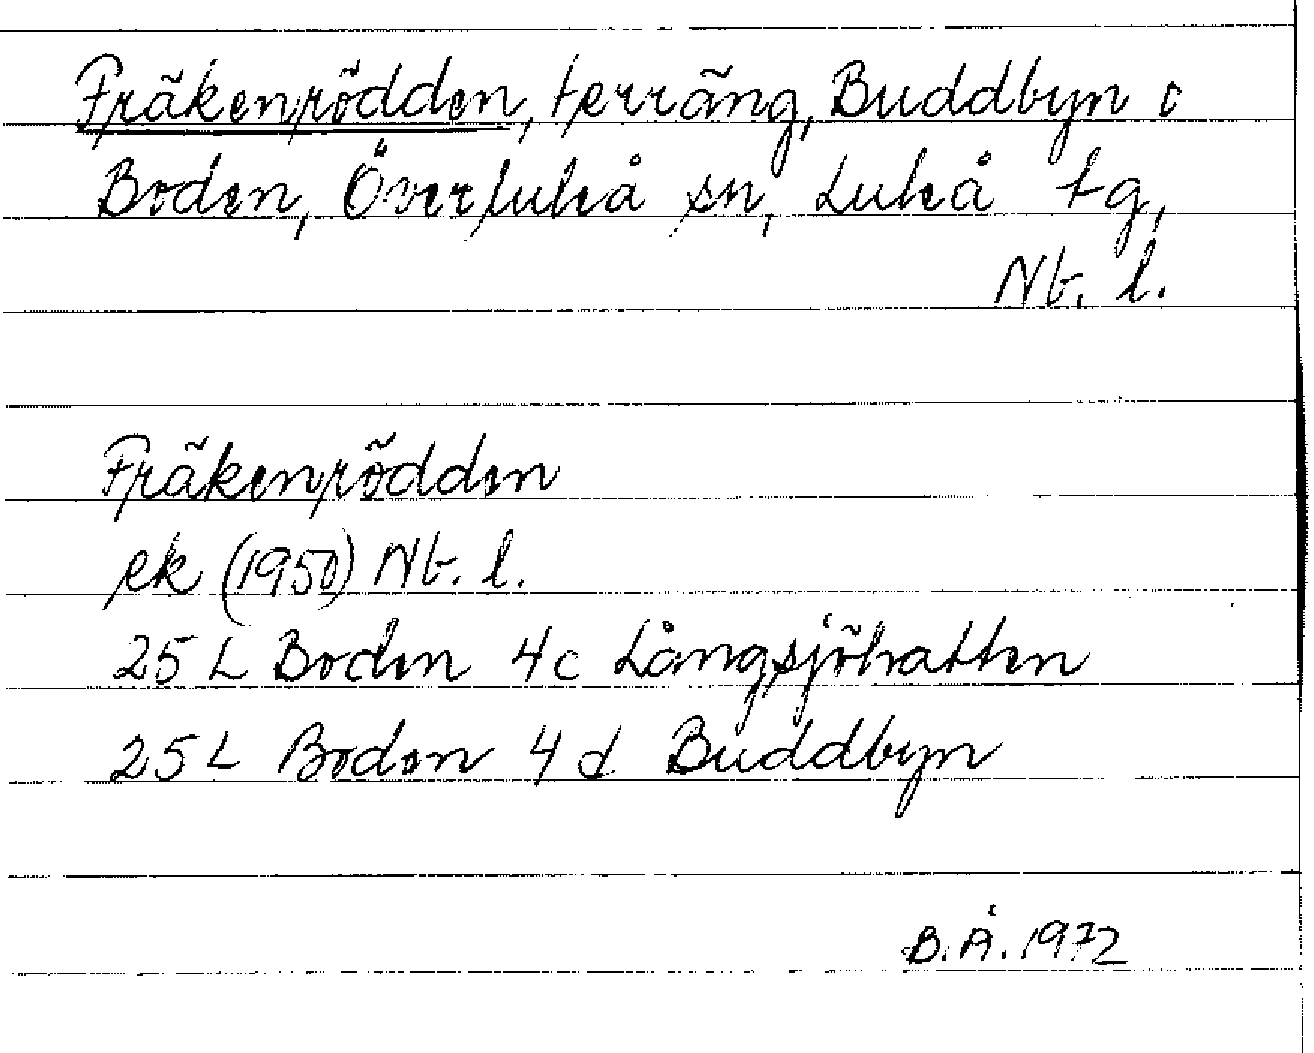 Fräkenrödden, terräng, Buddbyn o
Boden, Överluleå sn, Luleå tg,
Nb. l.
Fräkenrödden
ek (1950) Nb. l.
25 L Boden 4c Långsjöhatten
25 L Boden 4d Buddbyn
B.Å. 1972